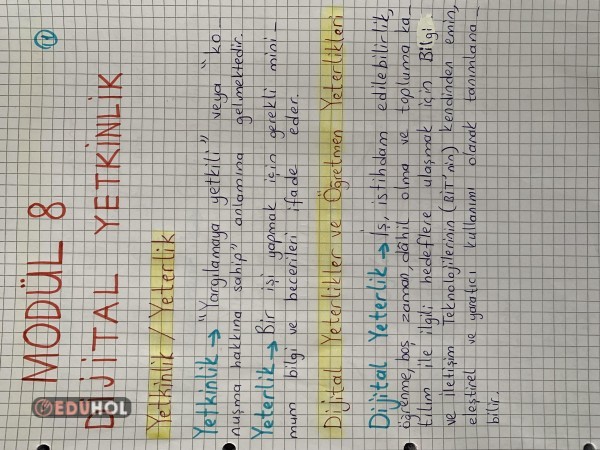 ①
MODÜL 8
DİJİTAL YETKİNLİK
Yetkinlik / Yeterlik
Yetkinlik → "Yargılamaya yetkili" veya "ko-
nuşma hakkına sahip" anlamına gelmektedir.
Yeterlik → Bir işi yapmak için gerekli mini-
mum bilgi ve becerileri ifade eder.
Dijital Yeterlikler ve Öğretmen Yeterlikleri
Dijital Yeterlik → İş, istihdam edilebilirlik,
öğrenme, boş zaman, dâhil olma ve topluma ka-
tılım ile ilgili hedeflere ulaşmak için Bilgi
ve iletişim Teknolojilerinin (BİT'nin) kendinden emin,
eleştirel ve yaratıcı kullanımı olarak tanımlana-
bilir.
EDUHOL